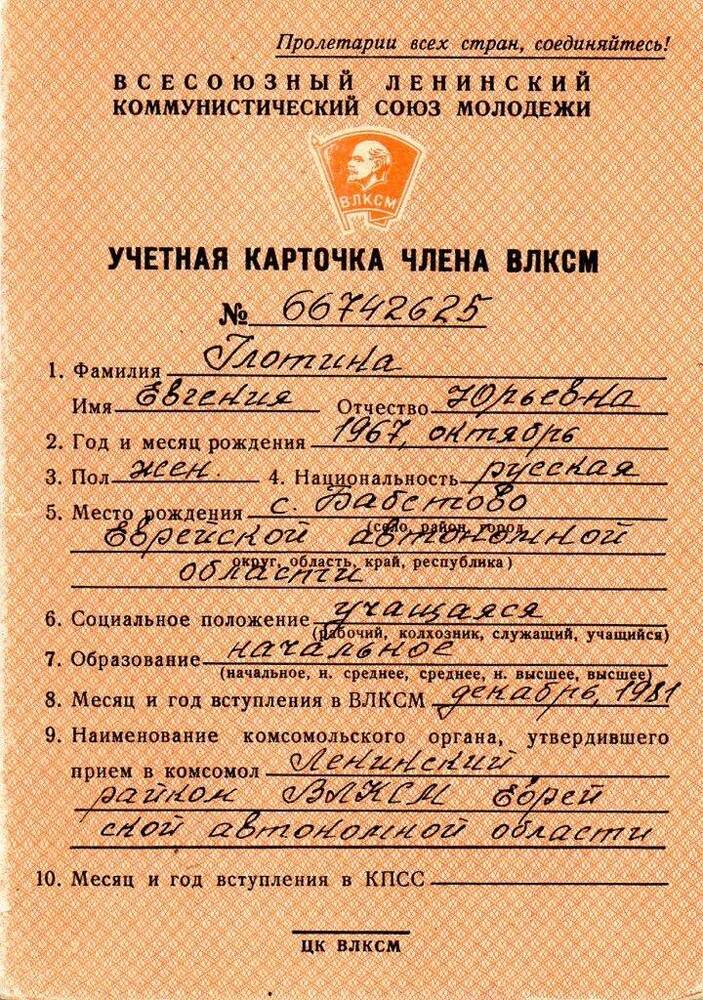 Пролетарии всех стран, соединяйтесь!
ВСЕСОЮЗНЫЙ ЛЕНИНСКИЙ
КОММУНИСТИЧЕСКИЙ СОЮЗ МОЛОДЕЖИ
ВЛКСМ
УЧЕТНАЯ КАРТОЧКА ЧЛЕНА ВЛКСМ
№ 66742625
1. Фамилия Глотина
Имя Евгения Отчество Юрьевна
2. Год и месяц рождения 1967, октябрь
3. Пол жен. 4. Национальность русская
5. Место рождения с. Бабстово
(село, район, город,
Еврейской автономной
округ, область, край, республика)
области
6. Социальное положение учащаяся
(рабочий, колхозник, служащий, учащийся)
7. Образование начальное
(начальное, н. среднее, среднее, н. высшее, высшее)
8. Месяц и год вступления в ВЛКСМ декабрь, 1981
9. Наименование комсомольского органа, утвердившего
прием в комсомол Ленинский
райком ВЛКСМ Еврей
ской автономной области
10. Месяц и год вступления в КПСС
ЦК ВЛКСМ